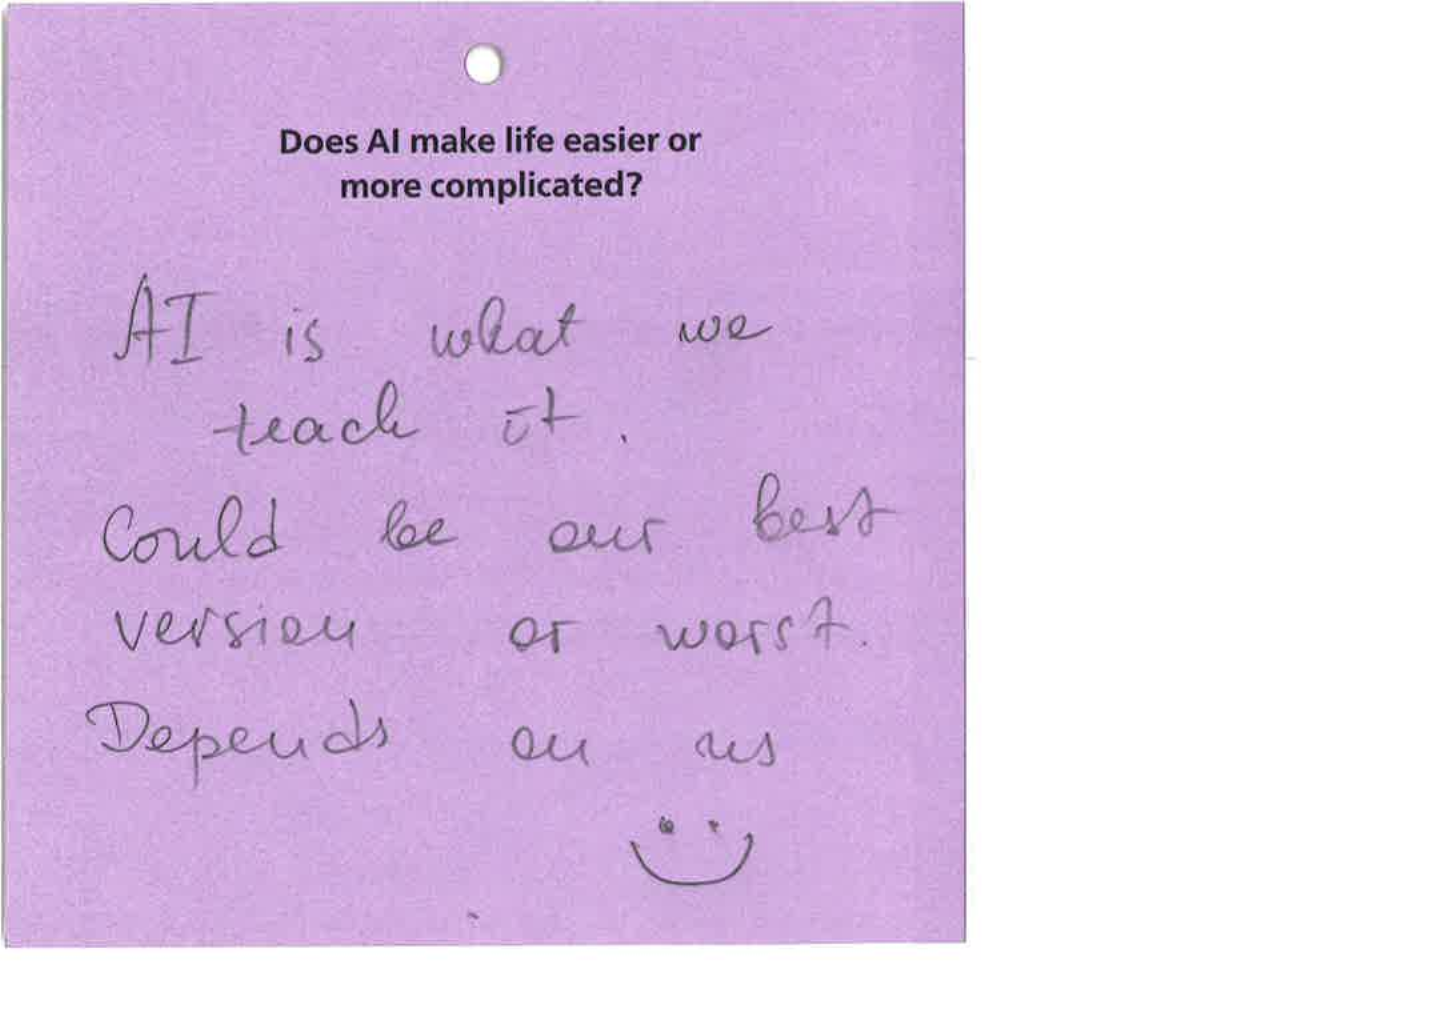 Does AI make life easier or
more complicated?
AI is what we
teach it.
Could be our best
version or worst.
Depends on us